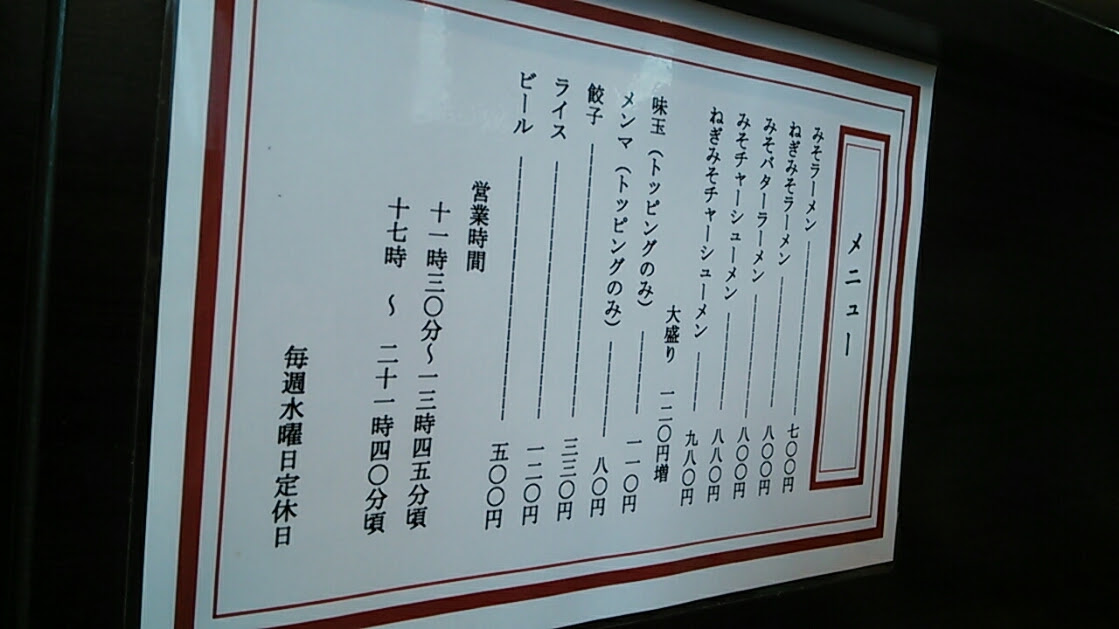 メニュー
みそラーメン 七〇〇円
ねぎみそラーメン 八〇〇円
みそバターラーメン 八〇〇円
みそチャーシューメン 八八〇円
ねぎみそチャーシューメン 九八〇円
大盛り 一二〇円増
味玉(トッピングのみ) 一一〇円
メンマ(トッピングのみ) 八〇円
餃子 三三〇円
ライス 一二〇円
ビール 五〇〇円
営業時間
十一時三〇分~一三時四五分頃
十七時 ~ 二十一時四〇分頃
毎週水曜日定休日